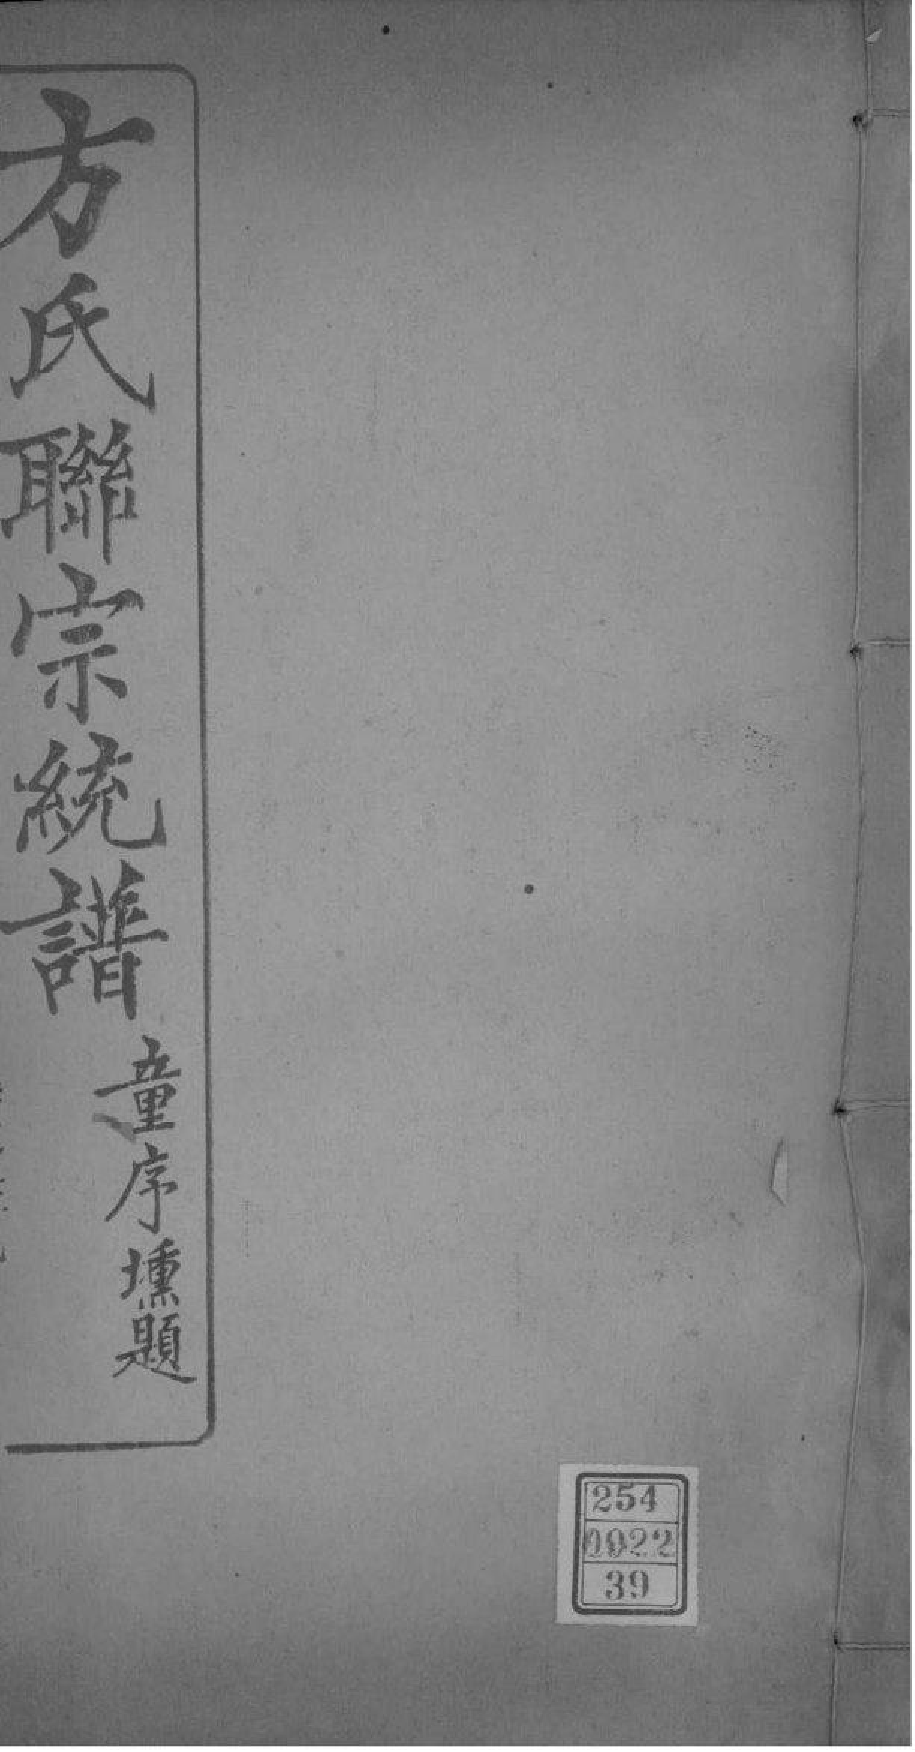 方氏聯宗統譜
童序壎題
254
0022
39